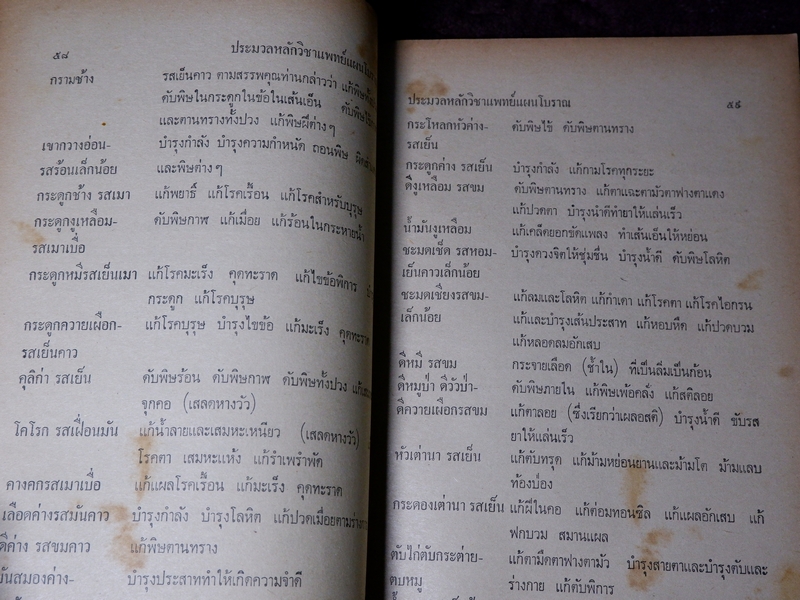 ๕๘ ประมวลหลักวิชาแพทย์แผนโบ
กรามช้าง รสเย็นคาว ตามสรรพคุณท่านกล่าวว่า แก้พิษ
ดับพิษในกระดูกในข้อในเส้นเอ็น ดับพิษ
และตานทรางทั้งปวง แก้พิษผีต่างๆ
เขากวางอ่อน- บำรุงกำลัง บำรุงความกำหนัด ถอนพิษ
รสร้อนเล็กน้อย และพิษต่างๆ
กระดูกช้าง รสเมา แก้พยาธิ์ แก้โรคเรื้อน แก้โรคสำหรับบุรุษ
กระดูกงูเหลือม- ดับพิษกาฬ แก้เมื่อย แก้ร้อนในกระหายน้ำ
รสเมาเบื่อ
กระดูกหมีรสเย็นเมา แก้โรคมะเร็ง คุดทะราด แก้ไขข้อพิการ
กระดูก แก้โรคบุรุษ
กระดูกควายเผือก- แก้โรคบุรุษ บำรุงไขข้อ แก้มะเร็ง คุดทะราด
รสเย็นคาว
คุลิก่า รสเย็น ดับพิษร้อน ดับพิษกาฬ ดับพิษทั้งปวง
จุกคอ (เสลดหางวัว)
โคโรก รสเฝื่อนมัน แก้น้ำลายและเสมหะเหนียว (เสลดหางวัว)
โรคตา เสมหะแห้ง แก้รำเพรำพัด
คางคกรสเมาเบื่อ แก้แผลโรคเรื้อน แก้มะเร็ง คุดทะราด
เลือดค่างรสมันคาว บำรุงกำลัง บำรุงโลหิต แก้ปวดเมื่อยตามร่างกา
ดีค่าง รสขมคาว แก้พิษตานทราง
มันสมองค่าง- บำรุงประสาททำให้เกิดความจำดี
ประมวลหลักวิชาแพทย์แผนโบราณ ๕๙
กระโหลกหัวค่าง- ดับพิษไข้ ดับพิษตานทราง
รสเย็น
กระดูกค่าง รสเย็น บำรุงกำลัง แก้กามโรคทุกระยะ
ดีงูเหลือม รสขม ดับพิษตานทราง แก้ตาแฉะตามัวตาฟางตาแดง
แก้ปวดตา บำรุงน้ำดีทำยาให้แล่นเร็ว
น้ำมันงูเหลือม แก้เคล็ดยอกขัดแพลง ทำเส้นเอ็นให้หย่อน
ชะมดเช็ด รสหอม- บำรุงดวงจิตให้ชุ่มชื่น บำรุงน้ำดี ดับพิษโลหิต
เย็นคาวเล็กน้อย
ชะมดเชียงรสขม- แก้ลมและโลหิต แก้กำเดา แก้โรคตา แก้โรคไอกรน
เล็กน้อย แก้และบำรุงเส้นประสาท แก้หอบหืด แก้ปวดบวม
แก้หลอดลมอักเสบ
ดีหมี รสขม กระจายเลือด (ช้ำใน) ที่เป็นลิ่มเป็นก้อน
ดีหมูป่า ดีวัวป่า- ดับพิษภายใน แก้พิษเพ้อคลั่ง แก้สติลอย
ดีควายเผือกรสขม แก้ตาลอย (ซึ่งเรียกว่าเผลอสติ) บำรุงน้ำดี ขับรส
ยาให้แล่นเร็ว
หัวเต่านา รสเย็น แก้ตับทรุด แก้ม้ามหย่อนยานและม้ามโต ม้ามแลบ
ท้องป่อง
กระดองเต่านา รสเย็น แก้ฝีในคอ แก้ต่อมทอนซิล แก้แผลอักเสบ แก้
ฟกบวม สมานแผล
ตับไก่ตับกระต่าย- แก้ตามืดตาฟางตามัว บำรุงสายตาและบำรุงตับและ
ตับหมู ร่างกาย แก้ตับพิการ